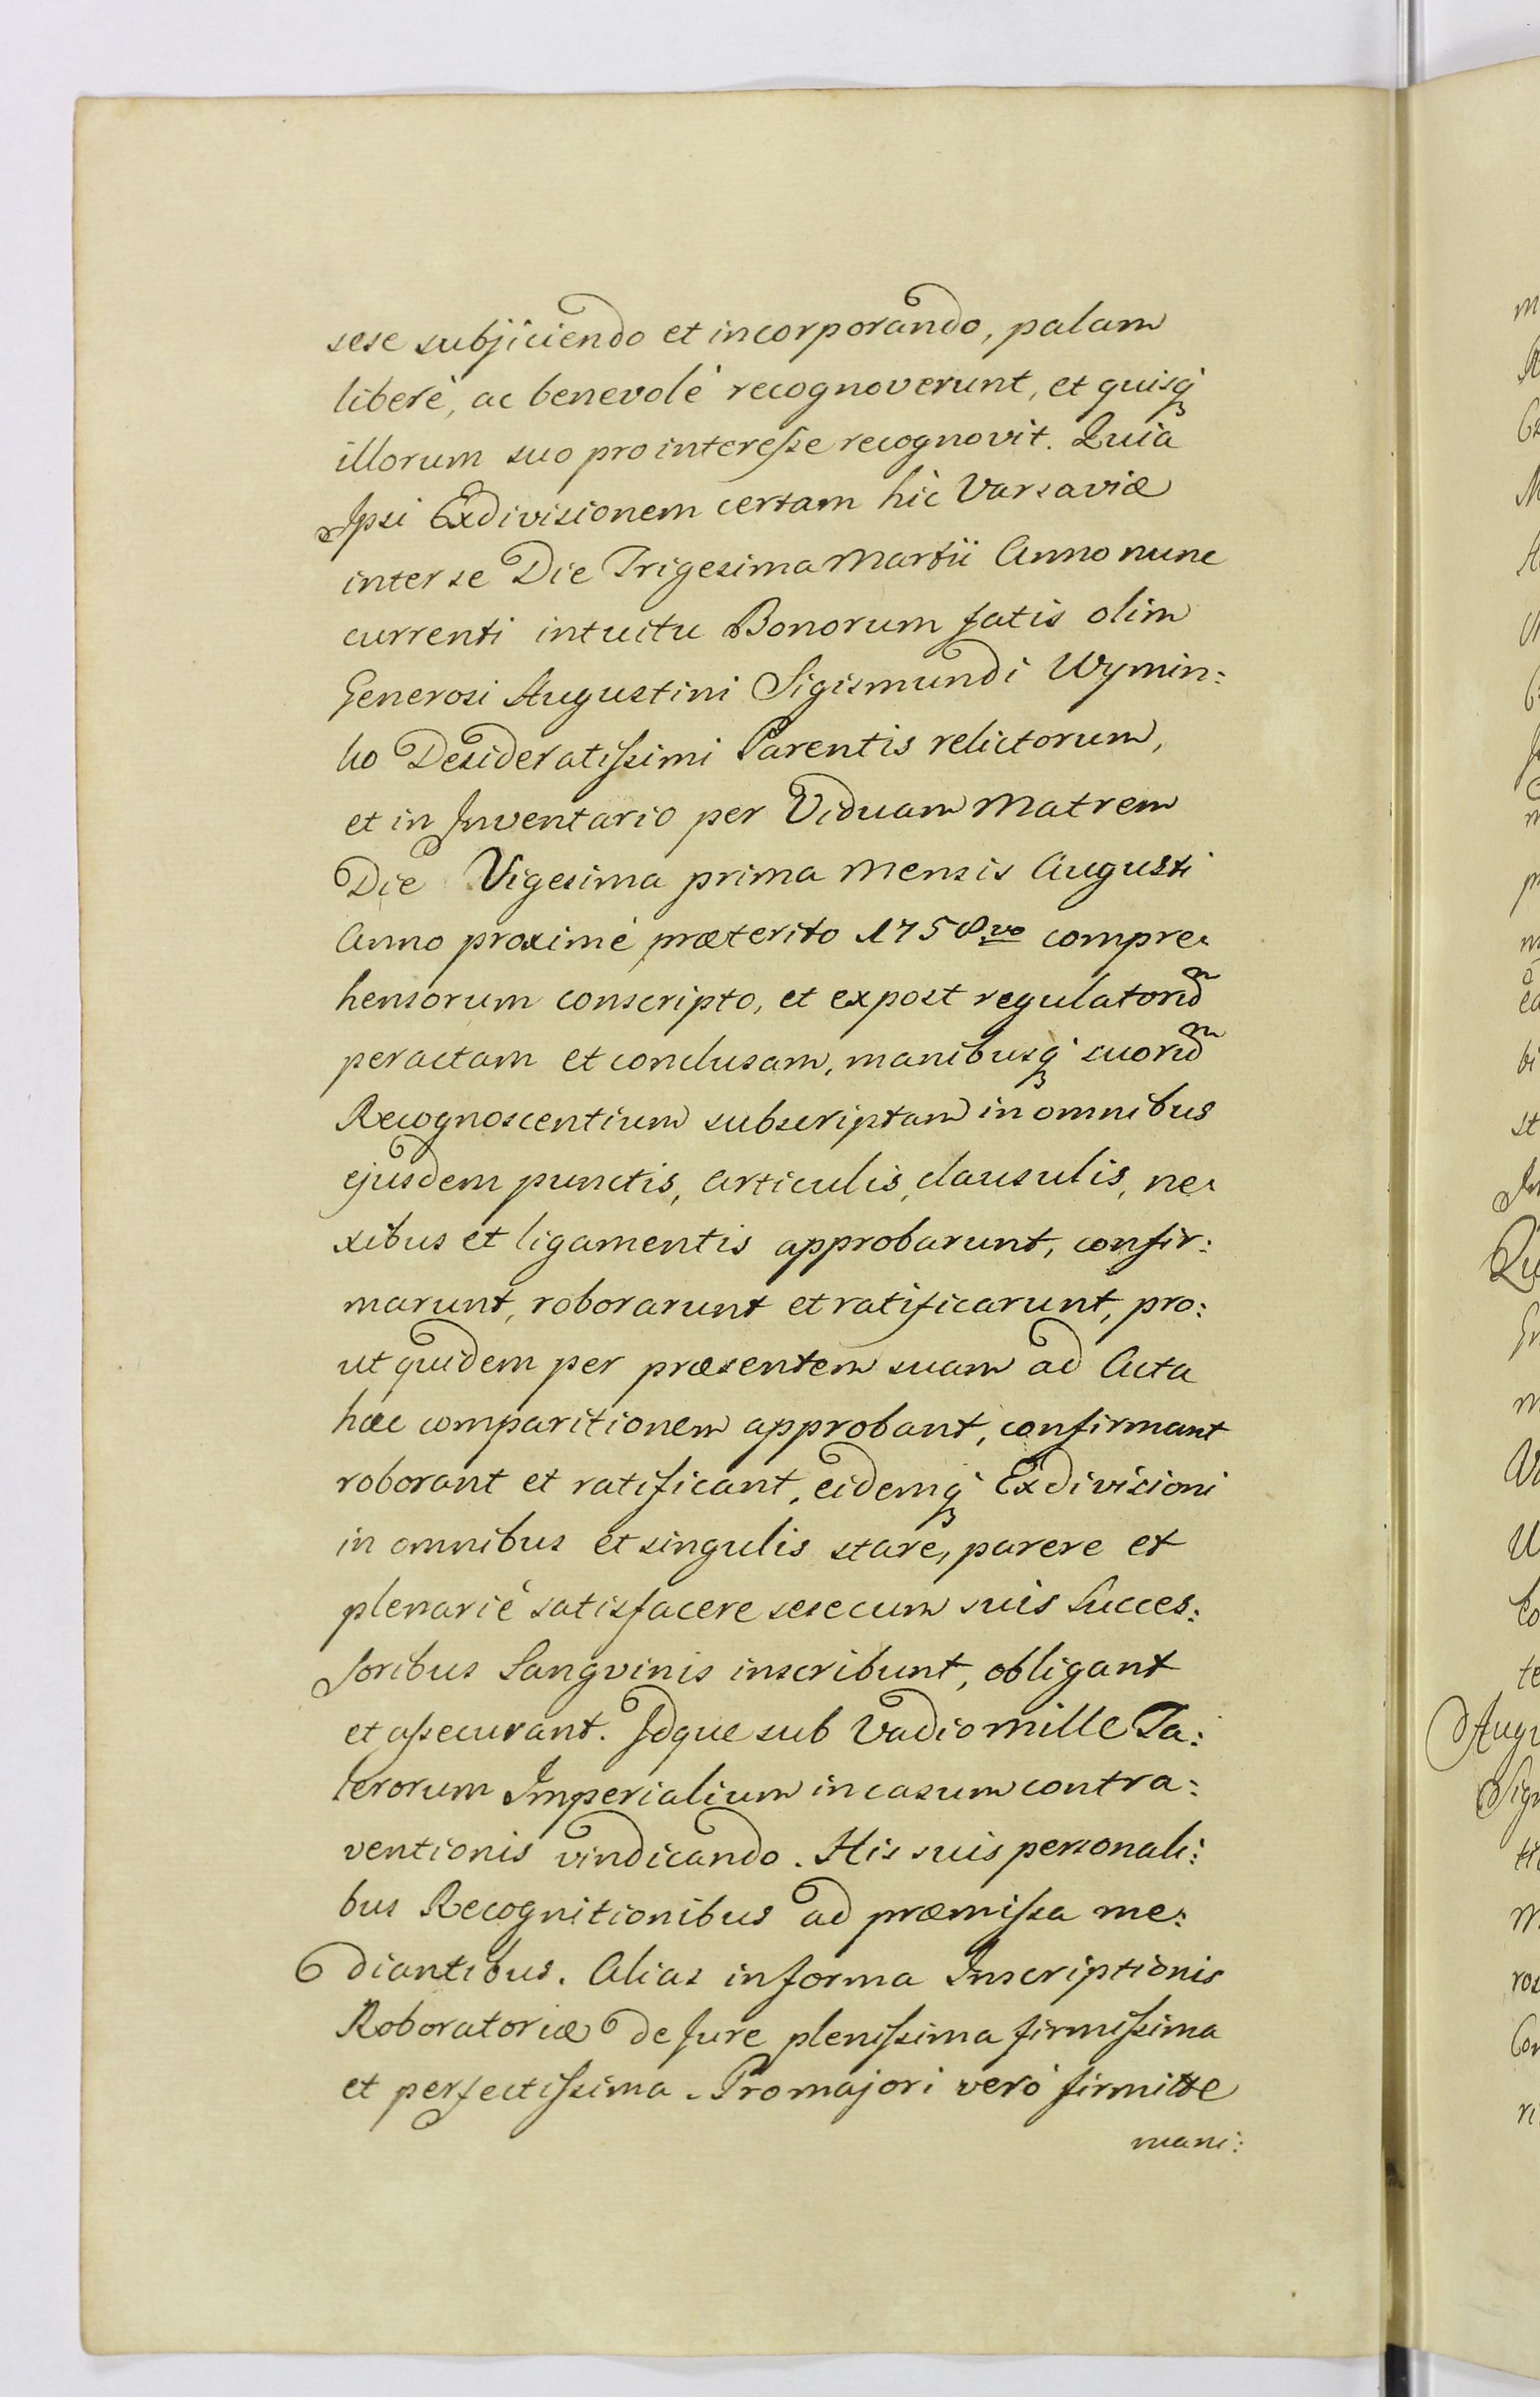 sese subjiciendo et incorporando, palam
liberè, ac benevolè recognoverunt, et quisq́;
illorum suo pro interesse recognovit. Quia
Ipsi Exdivisionem certam hic Varsaviæ
inter se Die Trigesima Martii Anno nunc
currenti intuitu Bonorum fatis olim
Generosi Augustini Sigismundi Wymin:
ko Desideratissimi Parentis relictorum,
et in Inventario per Viduam Matrem
Die Vigesima prima Mensis Augusti
Anno proximè præterito 1758vo compre:
hensorum conscripto, et expost regulatorũ
peractam et conclusam, manibusq́; suorũ
Recognoscentium subscriptam in omnibus
ejusdem punctis, articulis, clausulis, ne:
xibus et ligamentis approbarunt, confir:
marunt, roborarunt et ratificarunt, pro:
ut quidem per præsentem suam ad Acta
hæc comparitionem approbant, confirmant
roborant et ratificant, eidemq́; Exdivisioni
in omnibus et singulis stare, parere et
plenariè satisfacere sese cum suis Succes:
soribus Sangvinis inscribunt, obligant
et assecurant. Idque sub Vadio mille Ta:
lerorum Imperialium in casum contra:
ventionis vindicando. His suis personali:
bus Recognitionibus ad præmissa me:
diantibus. Alias in forma Inscriptionis
Roboratoriæ de Jure plenissima firmissima
et perfectissima. Pro majori verò firmitte
mani: